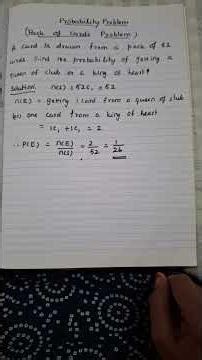 Probability Problem
(Pack of Cards Problem)
A card is drawn from a pack of 52
cards. Find the probability of getting a
queen of club or a king of heart?
Solution. n(S) = 52C₁ = 52
n(E) = getting 1 card from a queen of club
one card from a king of heart
= 1C₁ + 1C₁ = 2
∴ P(E) = n(E)/n(S) = 2/52 = 1/26